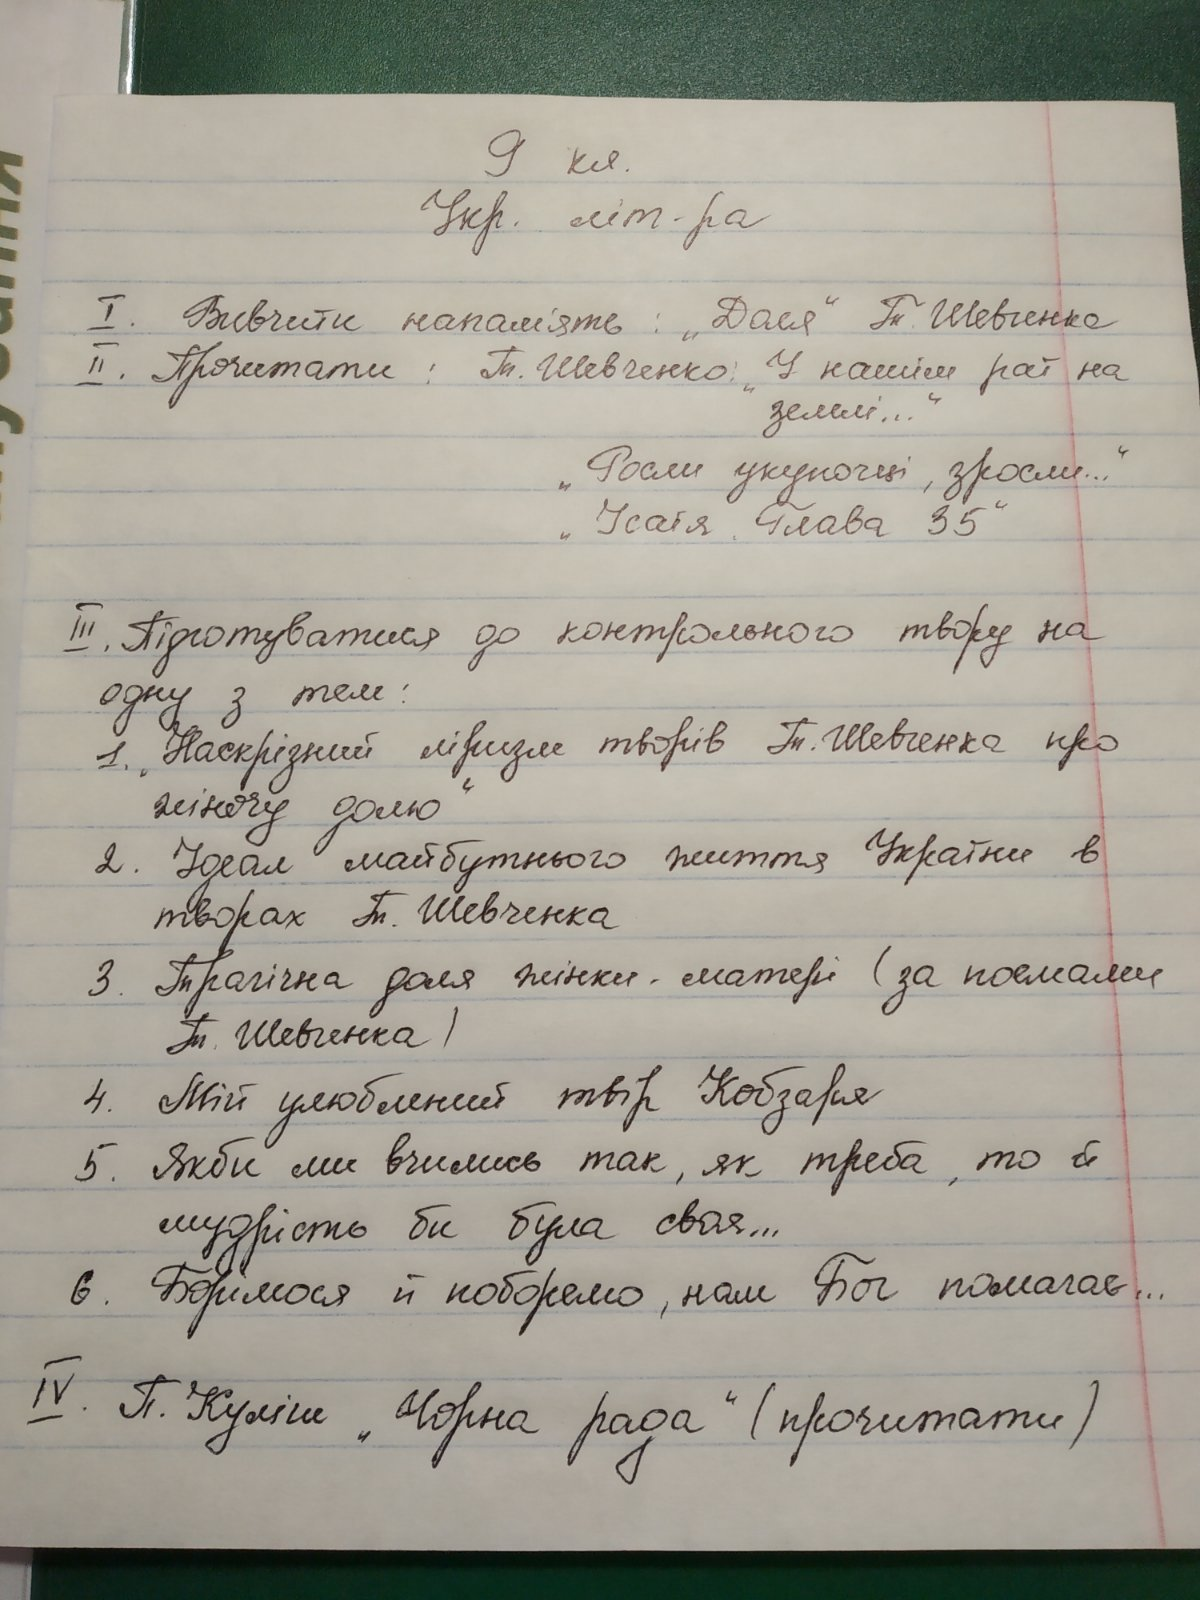 9 кл.
Укр. літ-ра
I. Вивчити напам'ять: „Доля“ Т. Шевченка
II. Прочитати: Т. Шевченко: „У нашім раї на
землі...“
„Росли укупочці, зросли...“
„Ісаія. Глава 35“
III. Підготуватися до контрольного твору на
одну з тем:
1. „Наскрізний ліризм творів Т. Шевченка про
жіночу долю“
2. Ідеал майбутнього життя України в
творах Т. Шевченка
3. Трагічна доля жінки-матері (за поемами
Т. Шевченка)
4. Мій улюблений твір Кобзаря
5. Якби ми вчились так, як треба, то й
мудрість би була своя...
6. Борімося й поборемо, нам Бог помагає...
IV. П. Куліш „Чорна рада“ (прочитати)